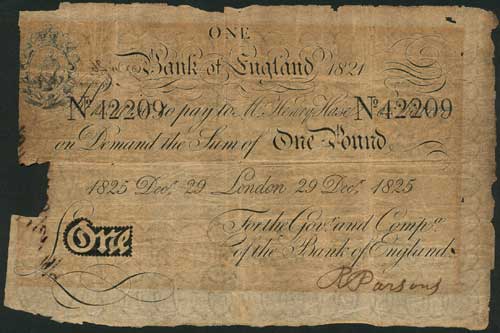 ONE
Bank of England 1821
No 42209 to pay to Mr. Henry Hase No 42209
on Demand the Sum of One Pound
1825 Decr. 29 London 29 Decr. 1825
For the Govr. and Compa.
of the Bank of England.
One
R Parsons